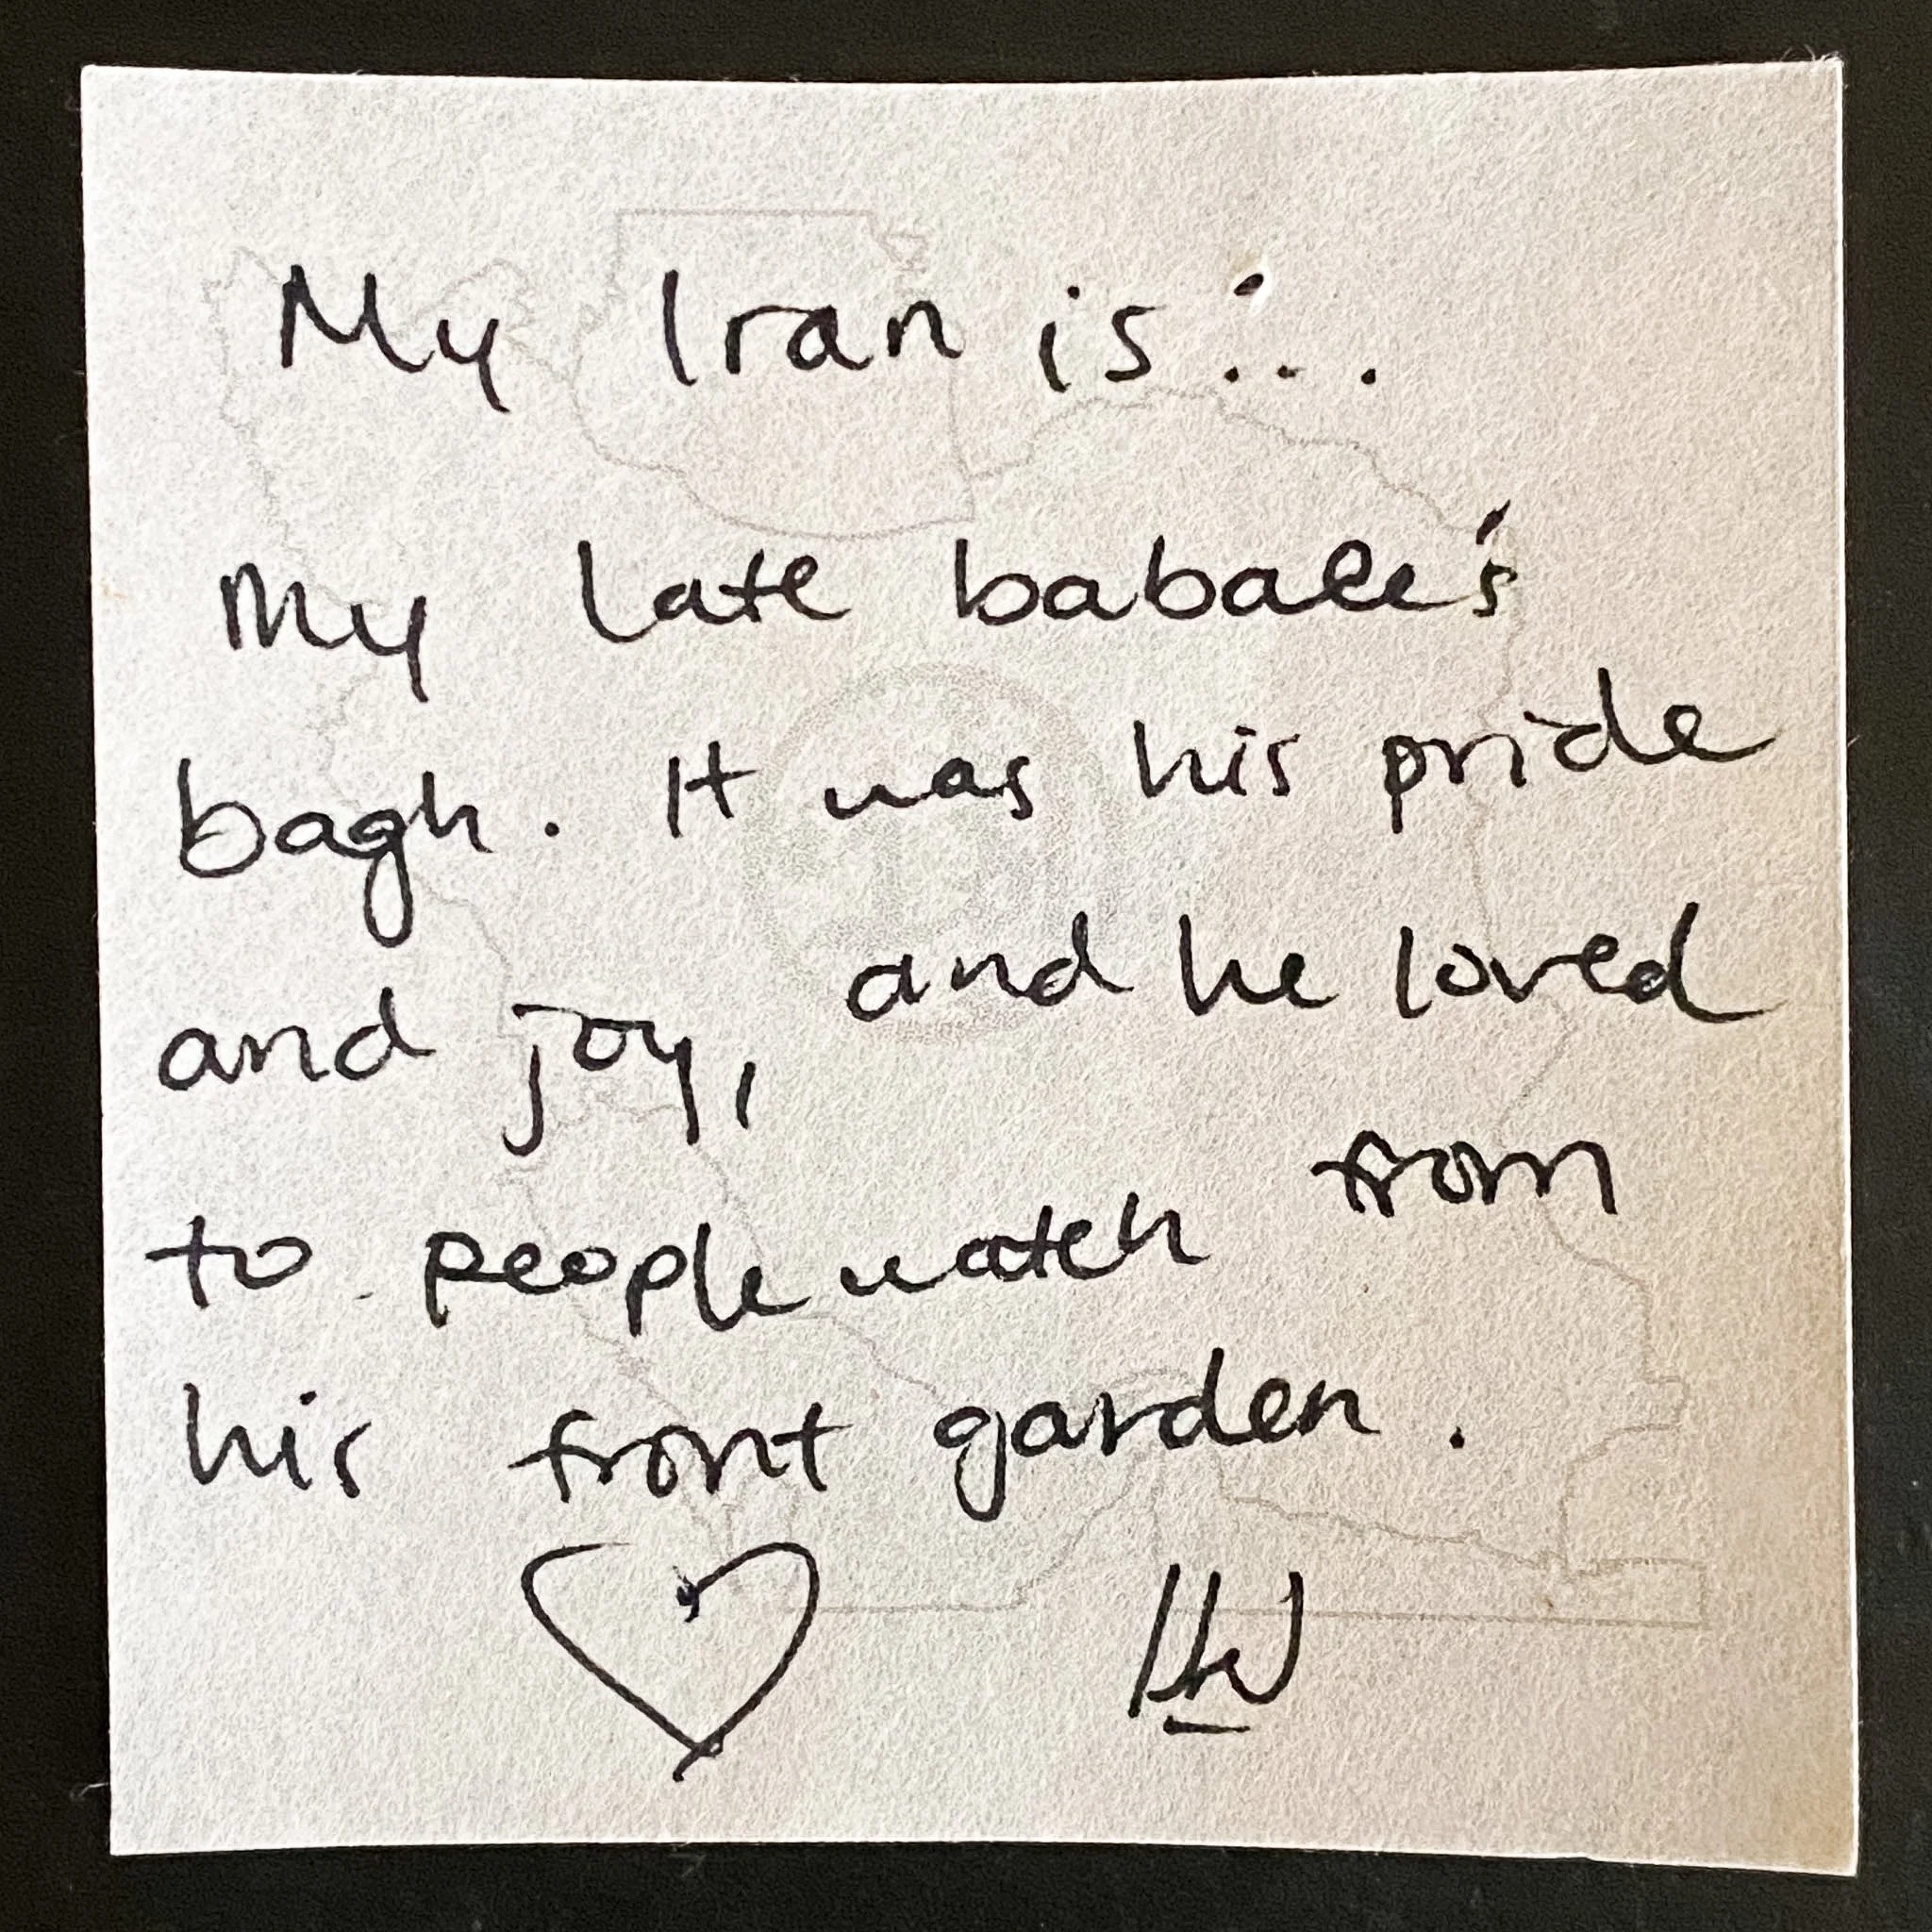 My Iran is...
My late babaee's
bagh. It was his pride
and joy, and he loved
to people watch from
his front garden.